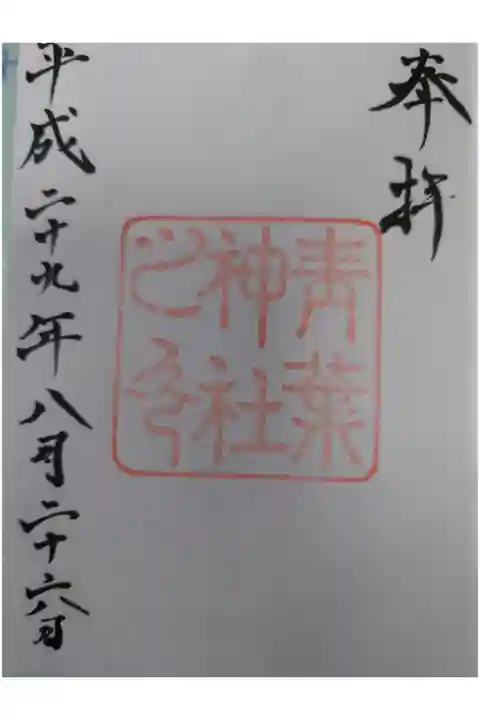 奉拝
青葉
神社
之印
平成二十九年八月二十六日